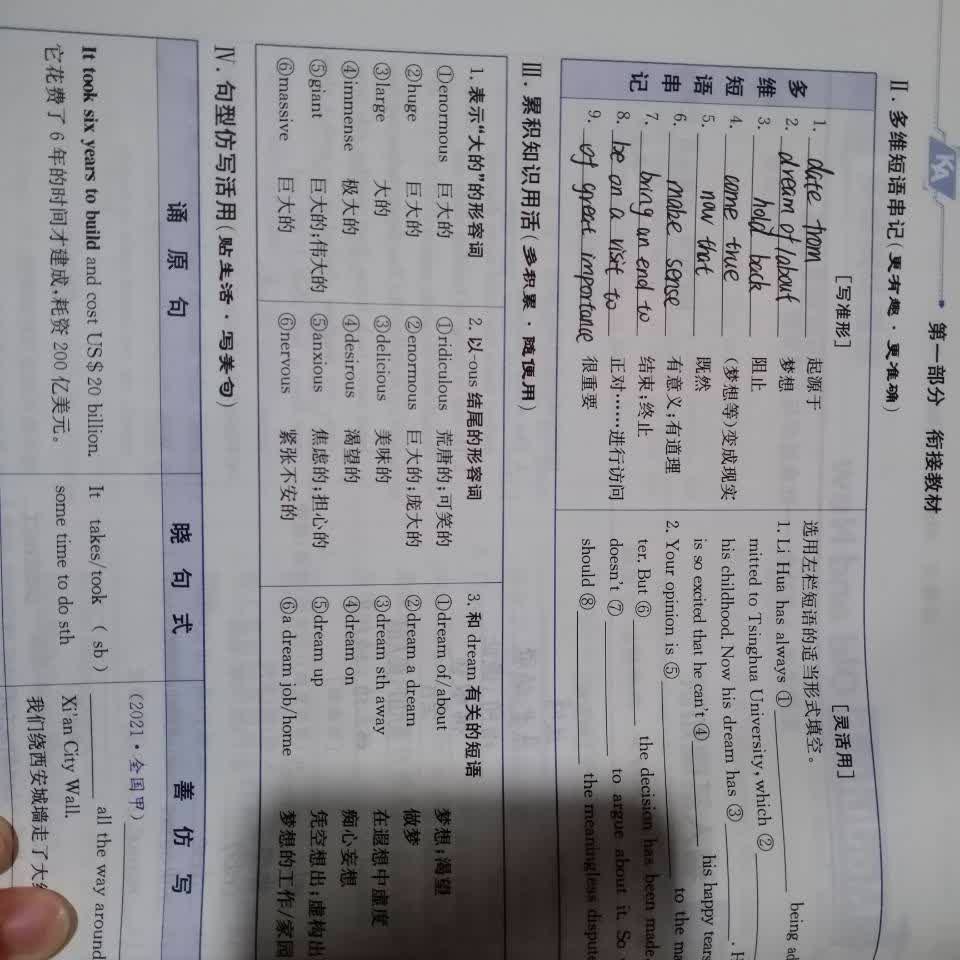 KA
第一部分 衔接教材
Ⅱ. 多维短语串记(更有趣·更准确)
多维短语串记
[写准形]
1. date from 起源于
2. dream of / about 梦想
3. hold back 阻止
4. come true (梦想等)变成现实
5. now that 既然
6. make sense 有意义;有道理
7. bring an end to 结束;终止
8. be on a visit to 正对……进行访问
9. of great importance 很重要
[灵活用]
选用左栏短语的适当形式填空。
1. Li Hua has always ① being ad
mitted to Tsinghua University, which ②
his childhood. Now his dream has ③ . H
is so excited that he can't ④ his happy tears
2. Your opinion is ⑤ to the ma
ter. But ⑥ the decision has been made,
doesn't ⑦ to argue about it. So
should ⑧ the meaningless dispute
Ⅲ. 累积知识用活(多积累·随便用)
1. 表示“大的”的形容词
①enormous 巨大的
②huge 巨大的
③large 大的
④immense 极大的
⑤giant 巨大的;伟大的
⑥massive 巨大的
2. 以-ous 结尾的形容词
①ridiculous 荒唐的;可笑的
②enormous 巨大的;庞大的
③delicious 美味的
④desirous 渴望的
⑤anxious 焦虑的;担心的
⑥nervous 紧张不安的
3. 和 dream 有关的短语
①dream of/about 梦想;渴望
②dream a dream 做梦
③dream sth away 在遐想中虚度
④dream on 痴心妄想
⑤dream up 凭空想出;虚构出
⑥a dream job/home 梦想的工作/家园
Ⅳ. 句型仿写活用(贴生活·写美句)
诵原句
晓句式
善仿写
It took six years to build and cost US$ 20 billion.
它花费了 6 年的时间才建成,耗资 200 亿美元。
It takes/took (sb)
some time to do sth
(2021·全国甲)
all the way around
Xi'an City Wall.
我们绕西安城墙走了大